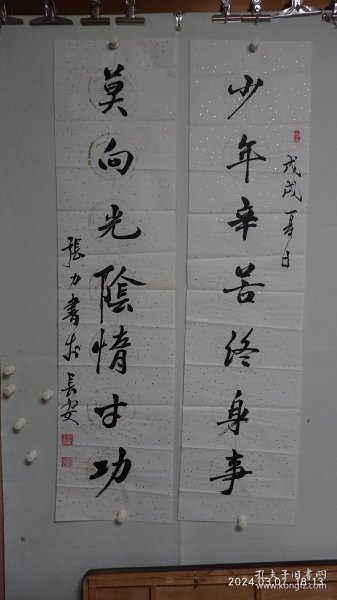 少年辛苦终身事
戊戌夏日
莫向光陰惰寸功
張力書於長安
2024.03.07 18:13
孔夫子旧书网
www.kongfz.com